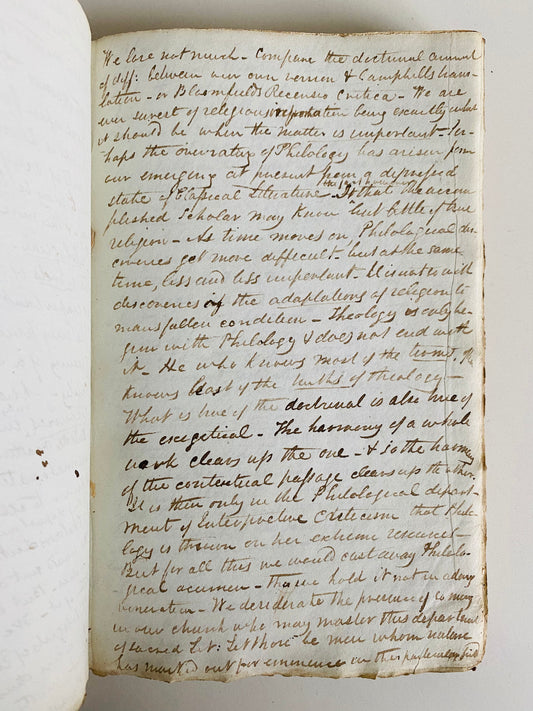 We lose not much – Compare the doctrinal amount
of diff: between our own version & Campbells trans-
lation – or Bloomfields Recensio Critica – We are
ever surest of religious information being exactly what
it should be when the matter is important – Per-
haps the overrating of Philology has arisen from
our emerging at present from a depressed
state of Classical Literature It is that The accom
plished Scholar may know but little of true
religion – As time moves on Philological dis
coveries get more difficult – but at the same
time, less and less important – It is not so with
discoveries of the adaptations of religion to
mans fallen condition – Theology is only be-
gun with Philology & does not end with
it – He who knows most of the terms,
knows least of the truths of theology –
What is true of the doctrinal is also true of
the exegetical – The harmony of a whole
work clears up the one – & so the harmony
of the contextual passage clears up the other.
It is then only in the Philological depart-
ment of Interpretive Criticism that Philo-
logy is thrown on her extreme resources –
But for all this we would cast away Philolo-
gical acumen – tho we hold it not in
veneration – We desiderate the presence of many
in our church who may master this department
of sacred Lit: Let there be men whom nature
has marked out for eminence in this particular field